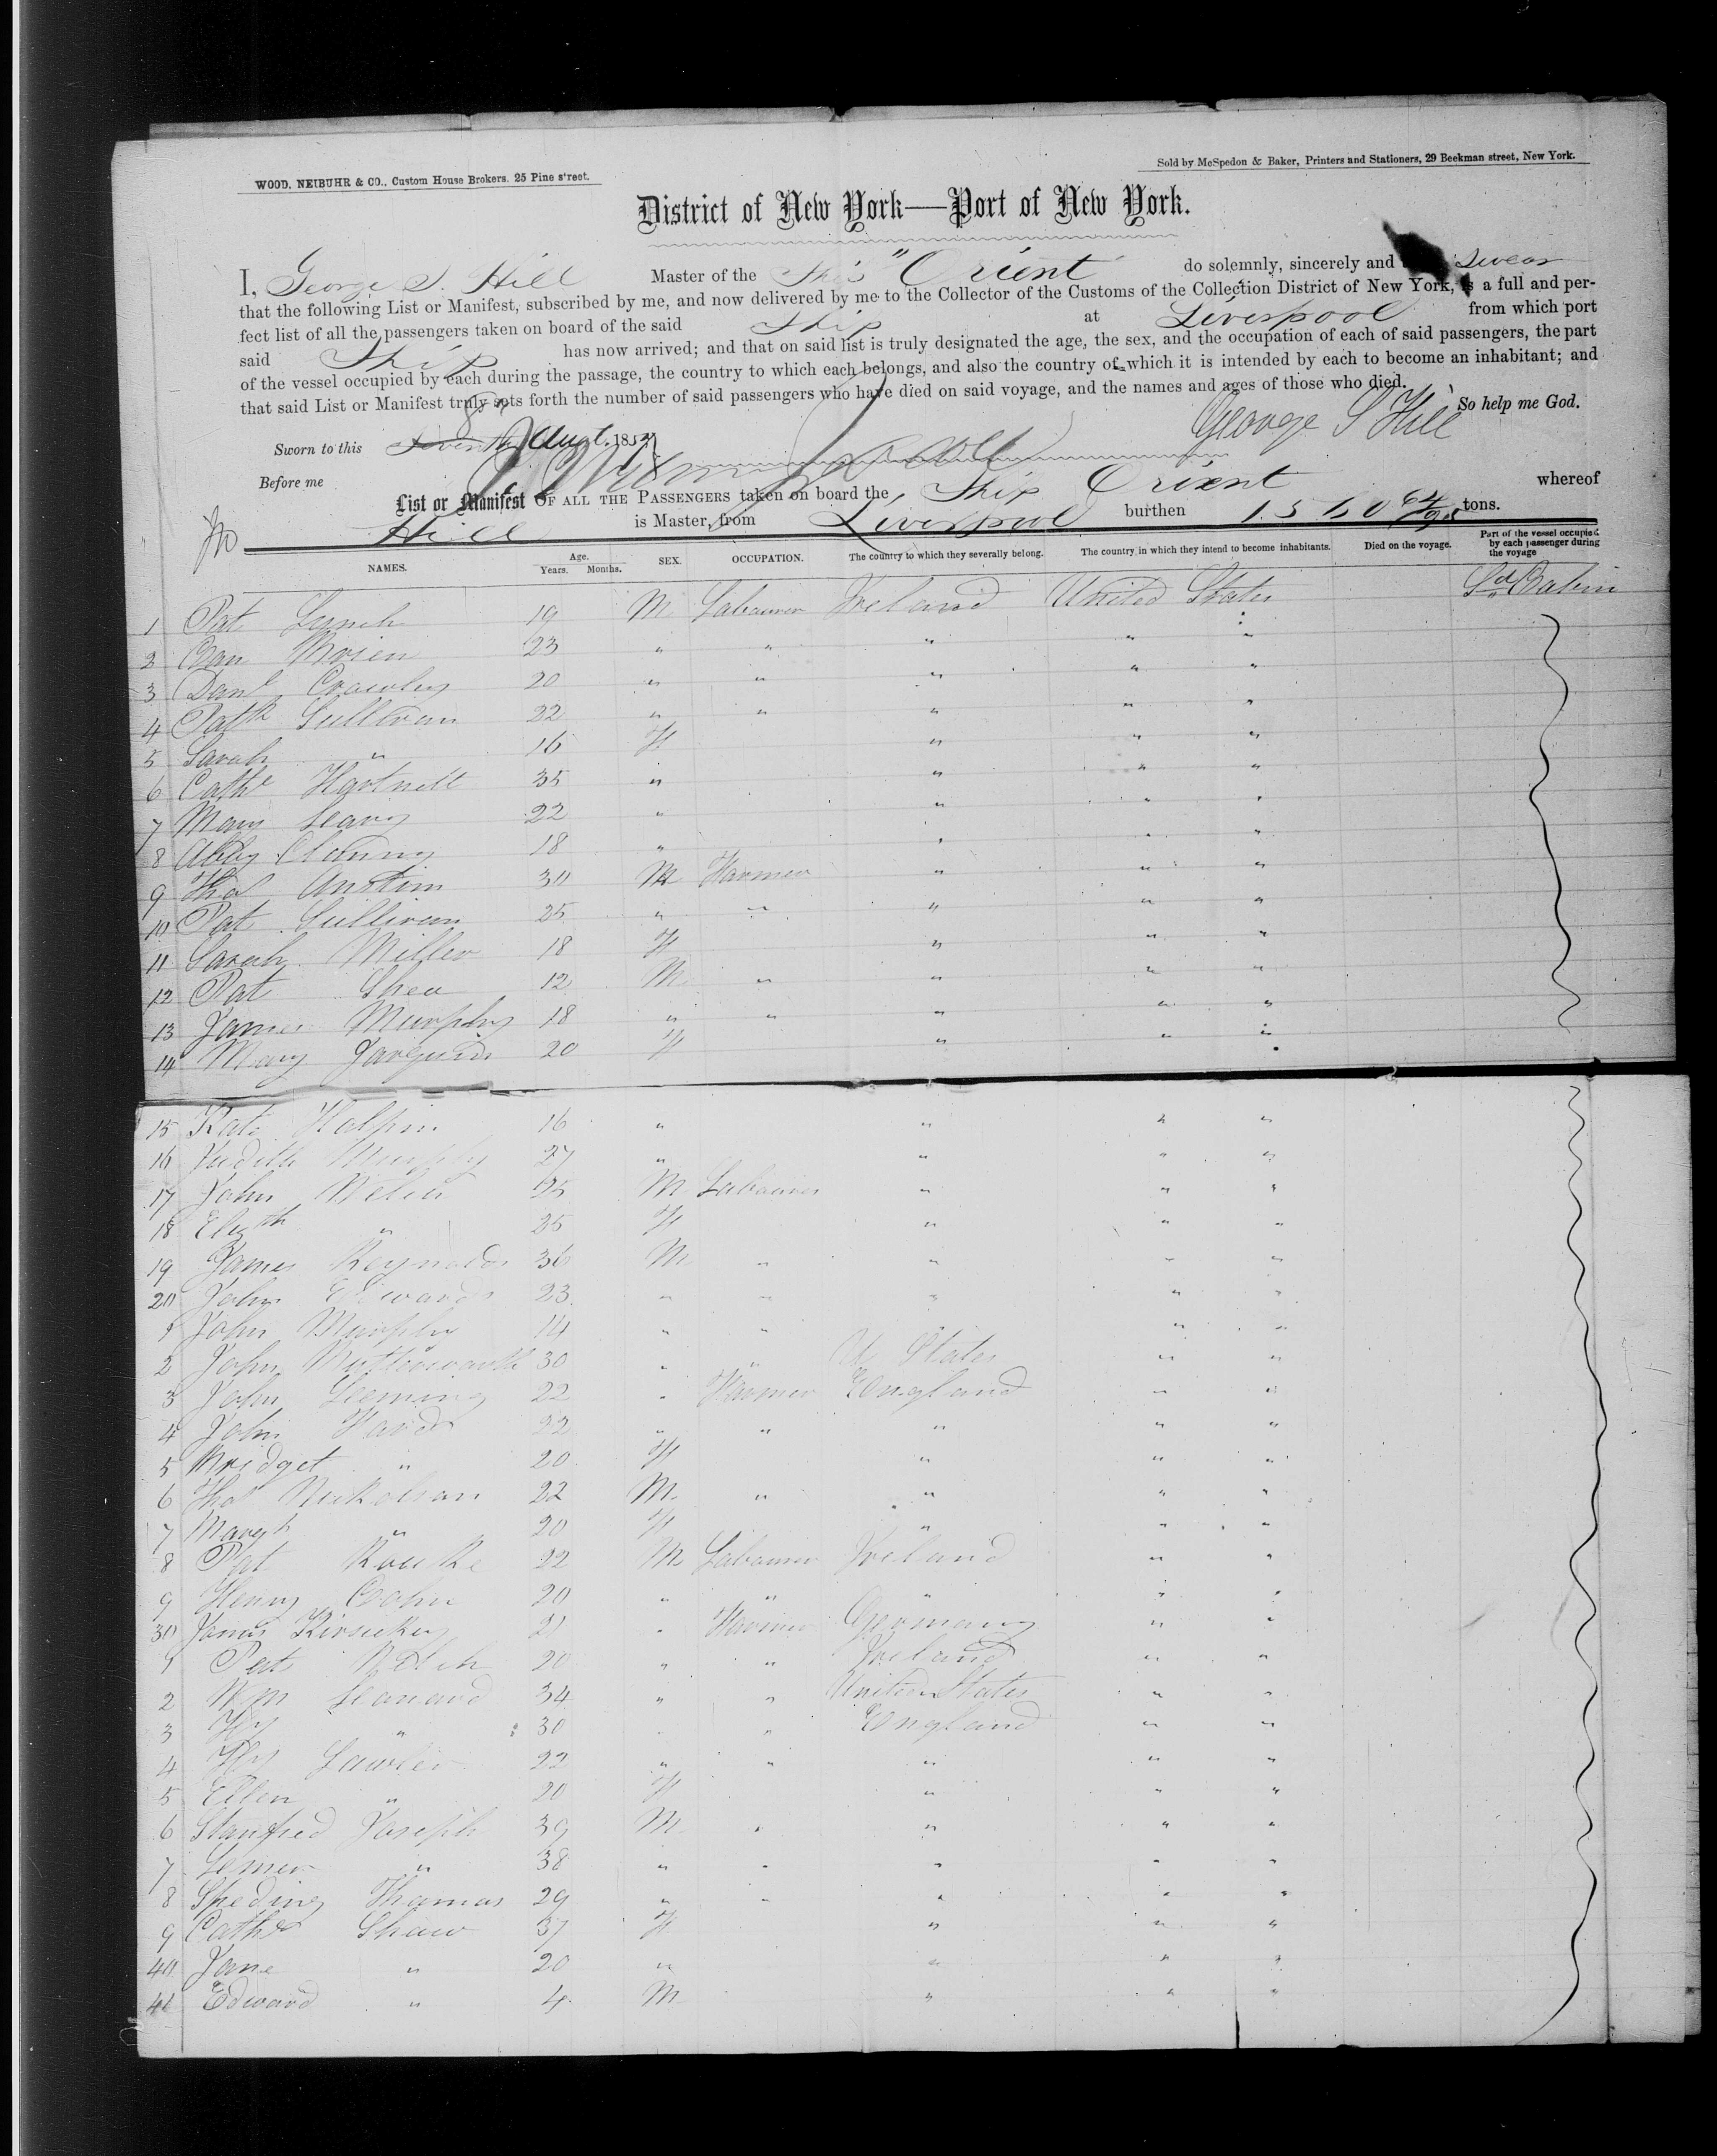 WOOD, NEIBUHR & CO., Custom House Brokers, 25 Pine street.
Sold by McSpedon & Baker, Printers and Stationers, 29 Beekman street, New York.
District of New York—Port of New York.
I, George S. Hill Master of the Ship "Orient" do solemnly, sincerely and swear
that the following List or Manifest, subscribed by me, and now delivered by me to the Collector of the Customs of the Collection District of New York, is a full and per-
fect list of all the passengers taken on board of the said Ship at Liverpool from which port
said Ship has now arrived; and that on said list is truly designated the age, the sex, and the occupation of each of said passengers, the part
of the vessel occupied by each during the passage, the country to which each belongs, and also the country of which it is intended by each to become an inhabitant; and
that said List or Manifest truly sets forth the number of said passengers who have died on said voyage, and the names and ages of those who died.
So help me God.
George S Hill
Sworn to this Augt. 185
Before me
List or Manifest OF ALL THE PASSENGERS taken on board the Ship Orient whereof
Hill is Master, from Liverpool burthen 1560 64/95 tons.
NAMES. Age. Years. Months. SEX. OCCUPATION. The country to which they severally belong. The country in which they intend to become inhabitants. Died on the voyage. Part of the vessel occupied by each passenger during the voyage
1 Pat Lynch 19 M Labourer Ireland United States Cabin
2 Brien 23 " " " " "
3 Danl Crowley 20 " " " " "
4 Patk Sullivan 22 " " " " "
5 Sarah " 16 F " " "
6 Cathe Hartnett 35 " " " "
7 Mary Leary 22 " " " "
8 Abby 18 " " " "
9 Thos Austin 30 M Farmer " " "
10 Pat Sullivan 25 " " " " "
11 Sarah Miller 18 F " " "
12 Pat Shea 12 M " " " "
13 James Murphy 18 " " " " "
14 Mary 20 F " " "
15 Kate Halpin 16 " " " "
16 Judith Murphy 27 " " " "
17 John M Labourer " " "
18 Elizth " 25 F " " "
19 James Reynolds 36 M " " " "
20 John Edwards 23 " " " " "
1 John Murphy 14 " " " "
2 John 30 " " U States " "
3 John Leeming 22 " Farmer England " "
4 John 22 " " " " "
5 Bridget " 20 F " " "
6 Thos Nickolson 22 M " " " "
7 Margt " 20 F " " "
8 Pat Rourke 22 M Labourer Ireland " "
9 Henry 20 " " " " "
30 James 21 " Farmer Germany " "
1 Pat Welch 20 " " Ireland " "
2 Wm Leonard 34 " " United States " "
3 Hy " 30 " " England " "
4 Hy Lawler 22 " " " " "
5 Ellen " 20 F " " "
6 Stanfred Joseph 39 M " " " "
7 " 38 " " " " "
8 Speding Thomas 29 " " " " "
9 Cathe Shaw 37 F " " "
40 Jane " 20 " " " "
41 Edward " 4 M " " "